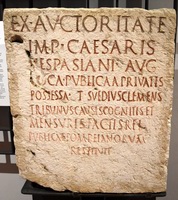 EX·AVCTORITATE
IMP·CAESARIS
VESPASIANI·AVG
LOCA·PVBLICA·A·PRIVATIS
POSSESSA·T·SVEDIVS·CLEMENS
TRIBVNVS·CAVSIS·COGNITIS·ET
MENSVRIS·FACTIS·REI
PVBLICAE·POMPEIANORVM
RESTITVIT